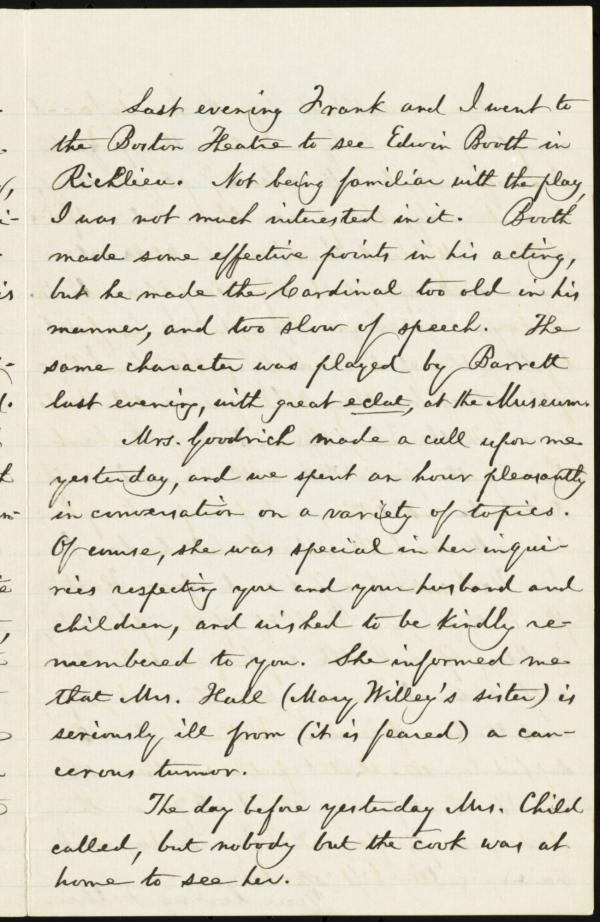 Last evening Frank and I went to
the Boston Theatre to see Edwin Booth in
Richlieu. Not being familiar with the play,
I was not much interested in it. Booth
made some effective points in his acting,
but he made the Cardinal too old in his
manner, and too slow of speech. The
same character was played by Barrett
last evening, with great eclat, at the Museum.
Mrs. Goodrich made a call upon me
yesterday, and we spent an hour pleasantly
in conversation on a variety of topics.
Of course, she was special in her inqui-
ries respecting you and your husband and
children, and wished to be kindly re-
membered to you. She informed me
that Mrs. Hall (Mary Willey's sister) is
seriously ill from (it is feared) a can-
cerous tumor.
The day before yesterday Mrs. Child
called, but nobody but the cook was at
home to see her.